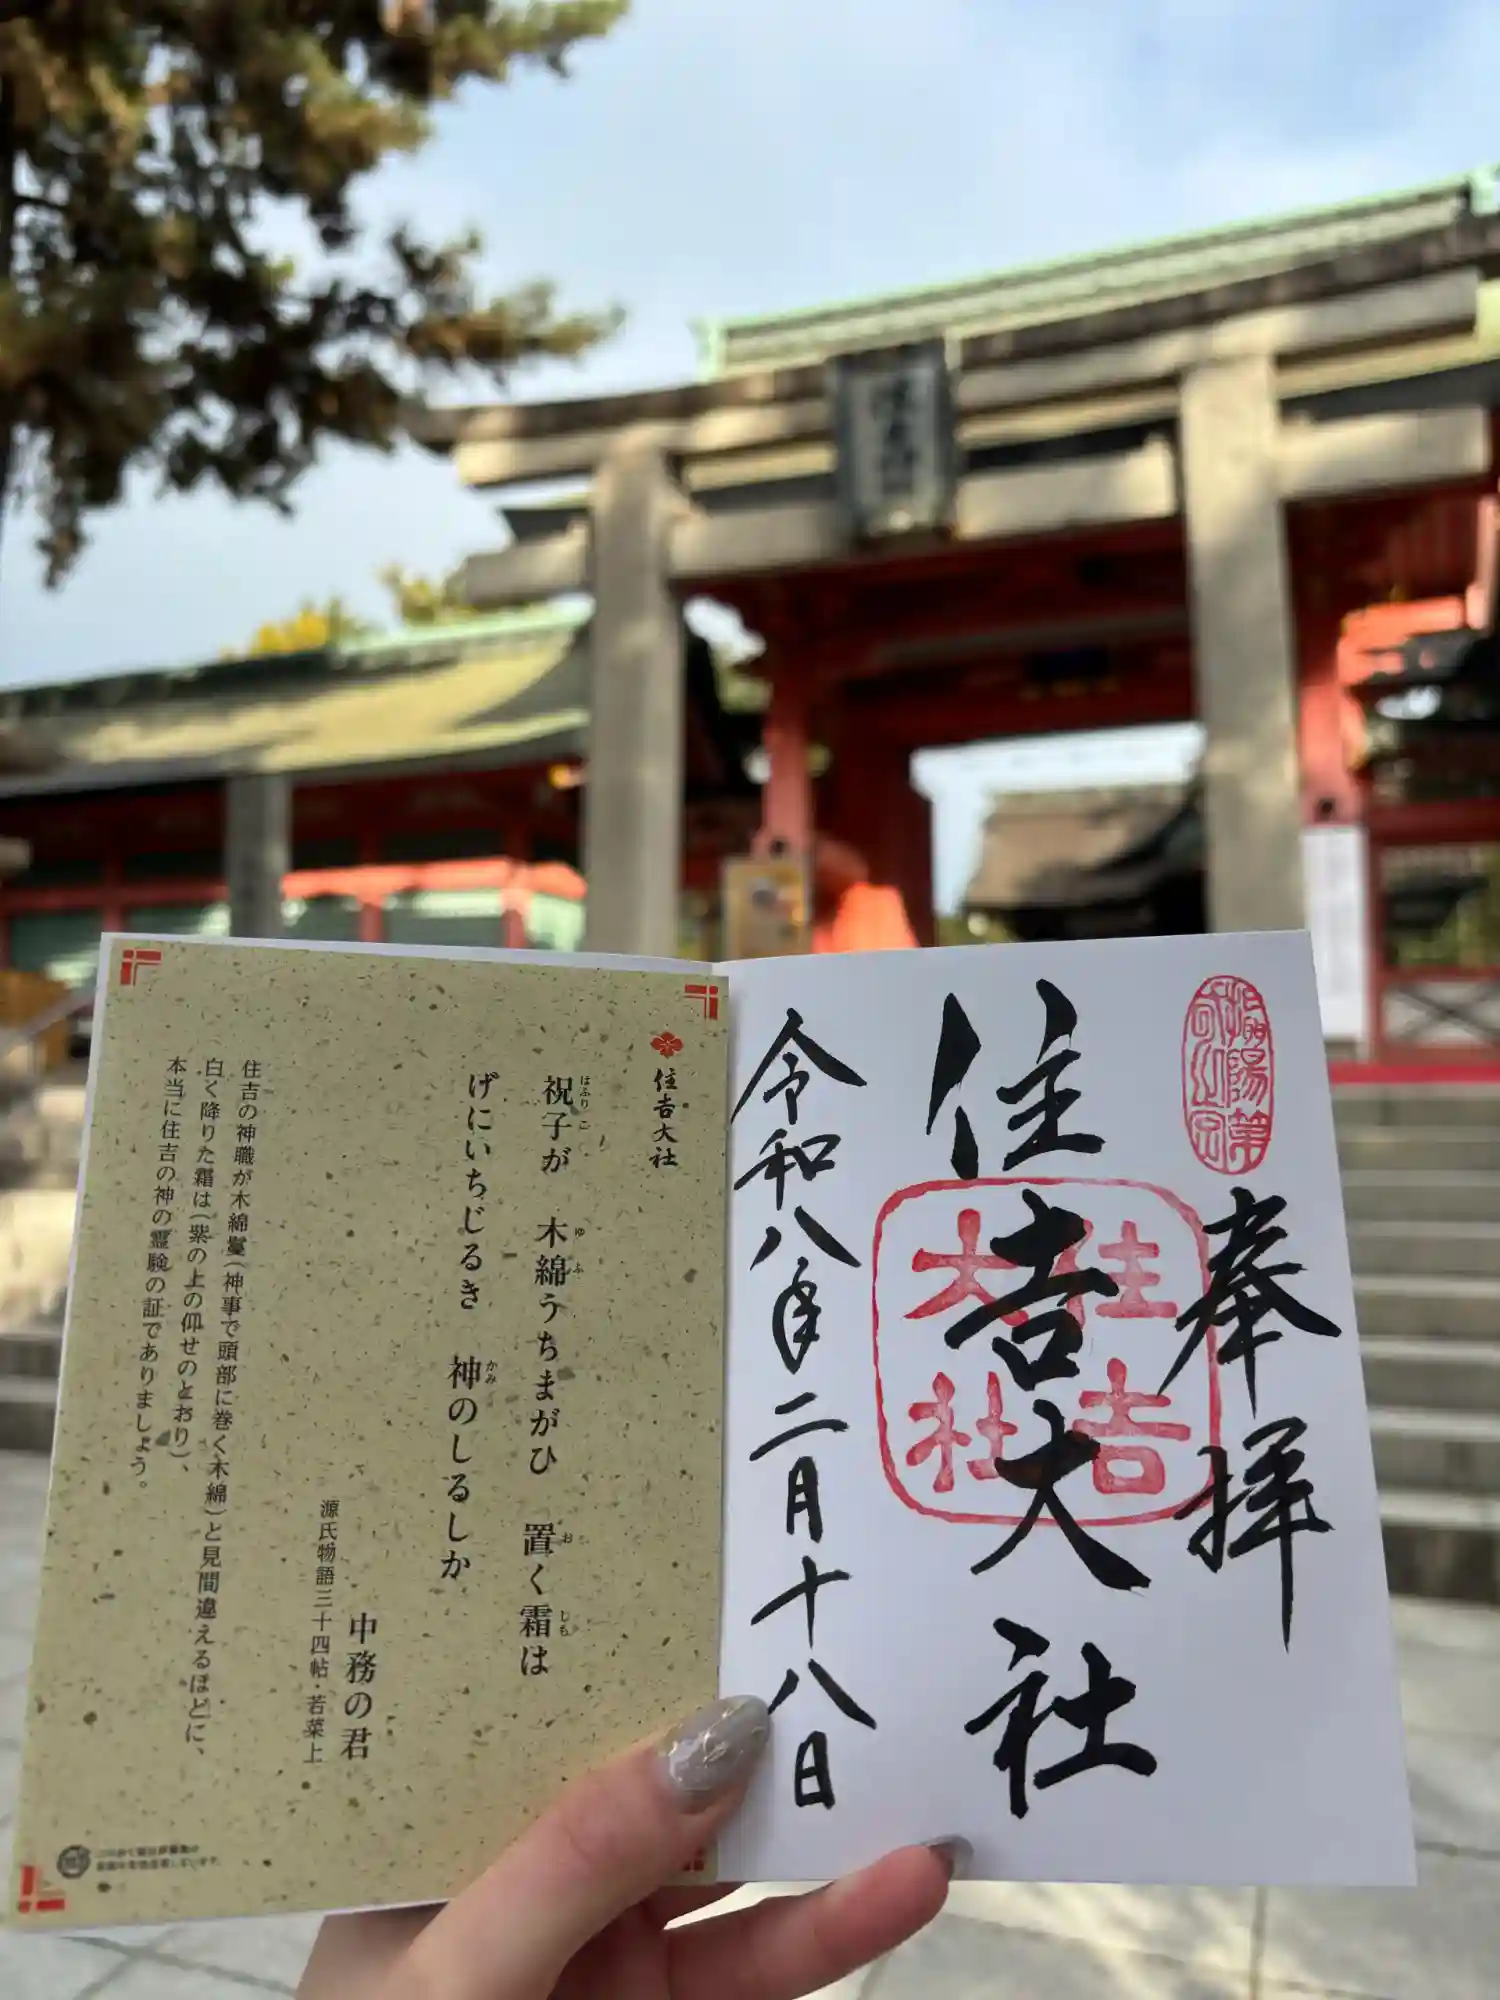 奉拝
住吉大社
令和八年二月十八日
住吉
大社
住吉大社
祝子が 木綿うちまがひ 置く霜は
はふりこ
ゆふ
お
しも
げにいちじるき 神のしるしか
かみ
中務の君
源氏物語三十四帖・若菜上
住吉の神職が木綿鬘(神事で頭部に巻く木綿)と見間違えるほどに、
白く降りた霜は(紫の上の仰せのとおり)、
本当に住吉の神の霊験の証でありましょう。